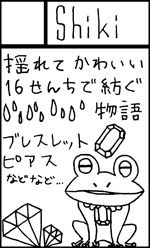 Shiki
揺れて かわいい
16せんちで紡ぐ
物語
ブレスレット
ピアス
などなど…